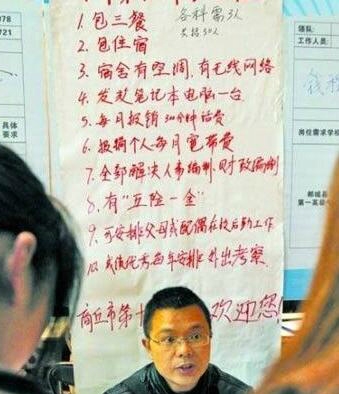 各科需3人
1. 包三餐
2. 包住宿
3. 宿舍有空调，有无线网络
4. 发超笔记本电脑一台
5. 每月报销300个种话费
6. 报销个人每月宽带费
7. 全部解决人事编制、财政编制
8. 有“五险一金”
9. 可安排父母或配偶在校后勤工作
10. 成绩优秀每年安排外出考察
商丘市第十
欢迎您!
领队:
工作人员:
具体
要求
岗位需求学校
郸城县
第一高级
078
721